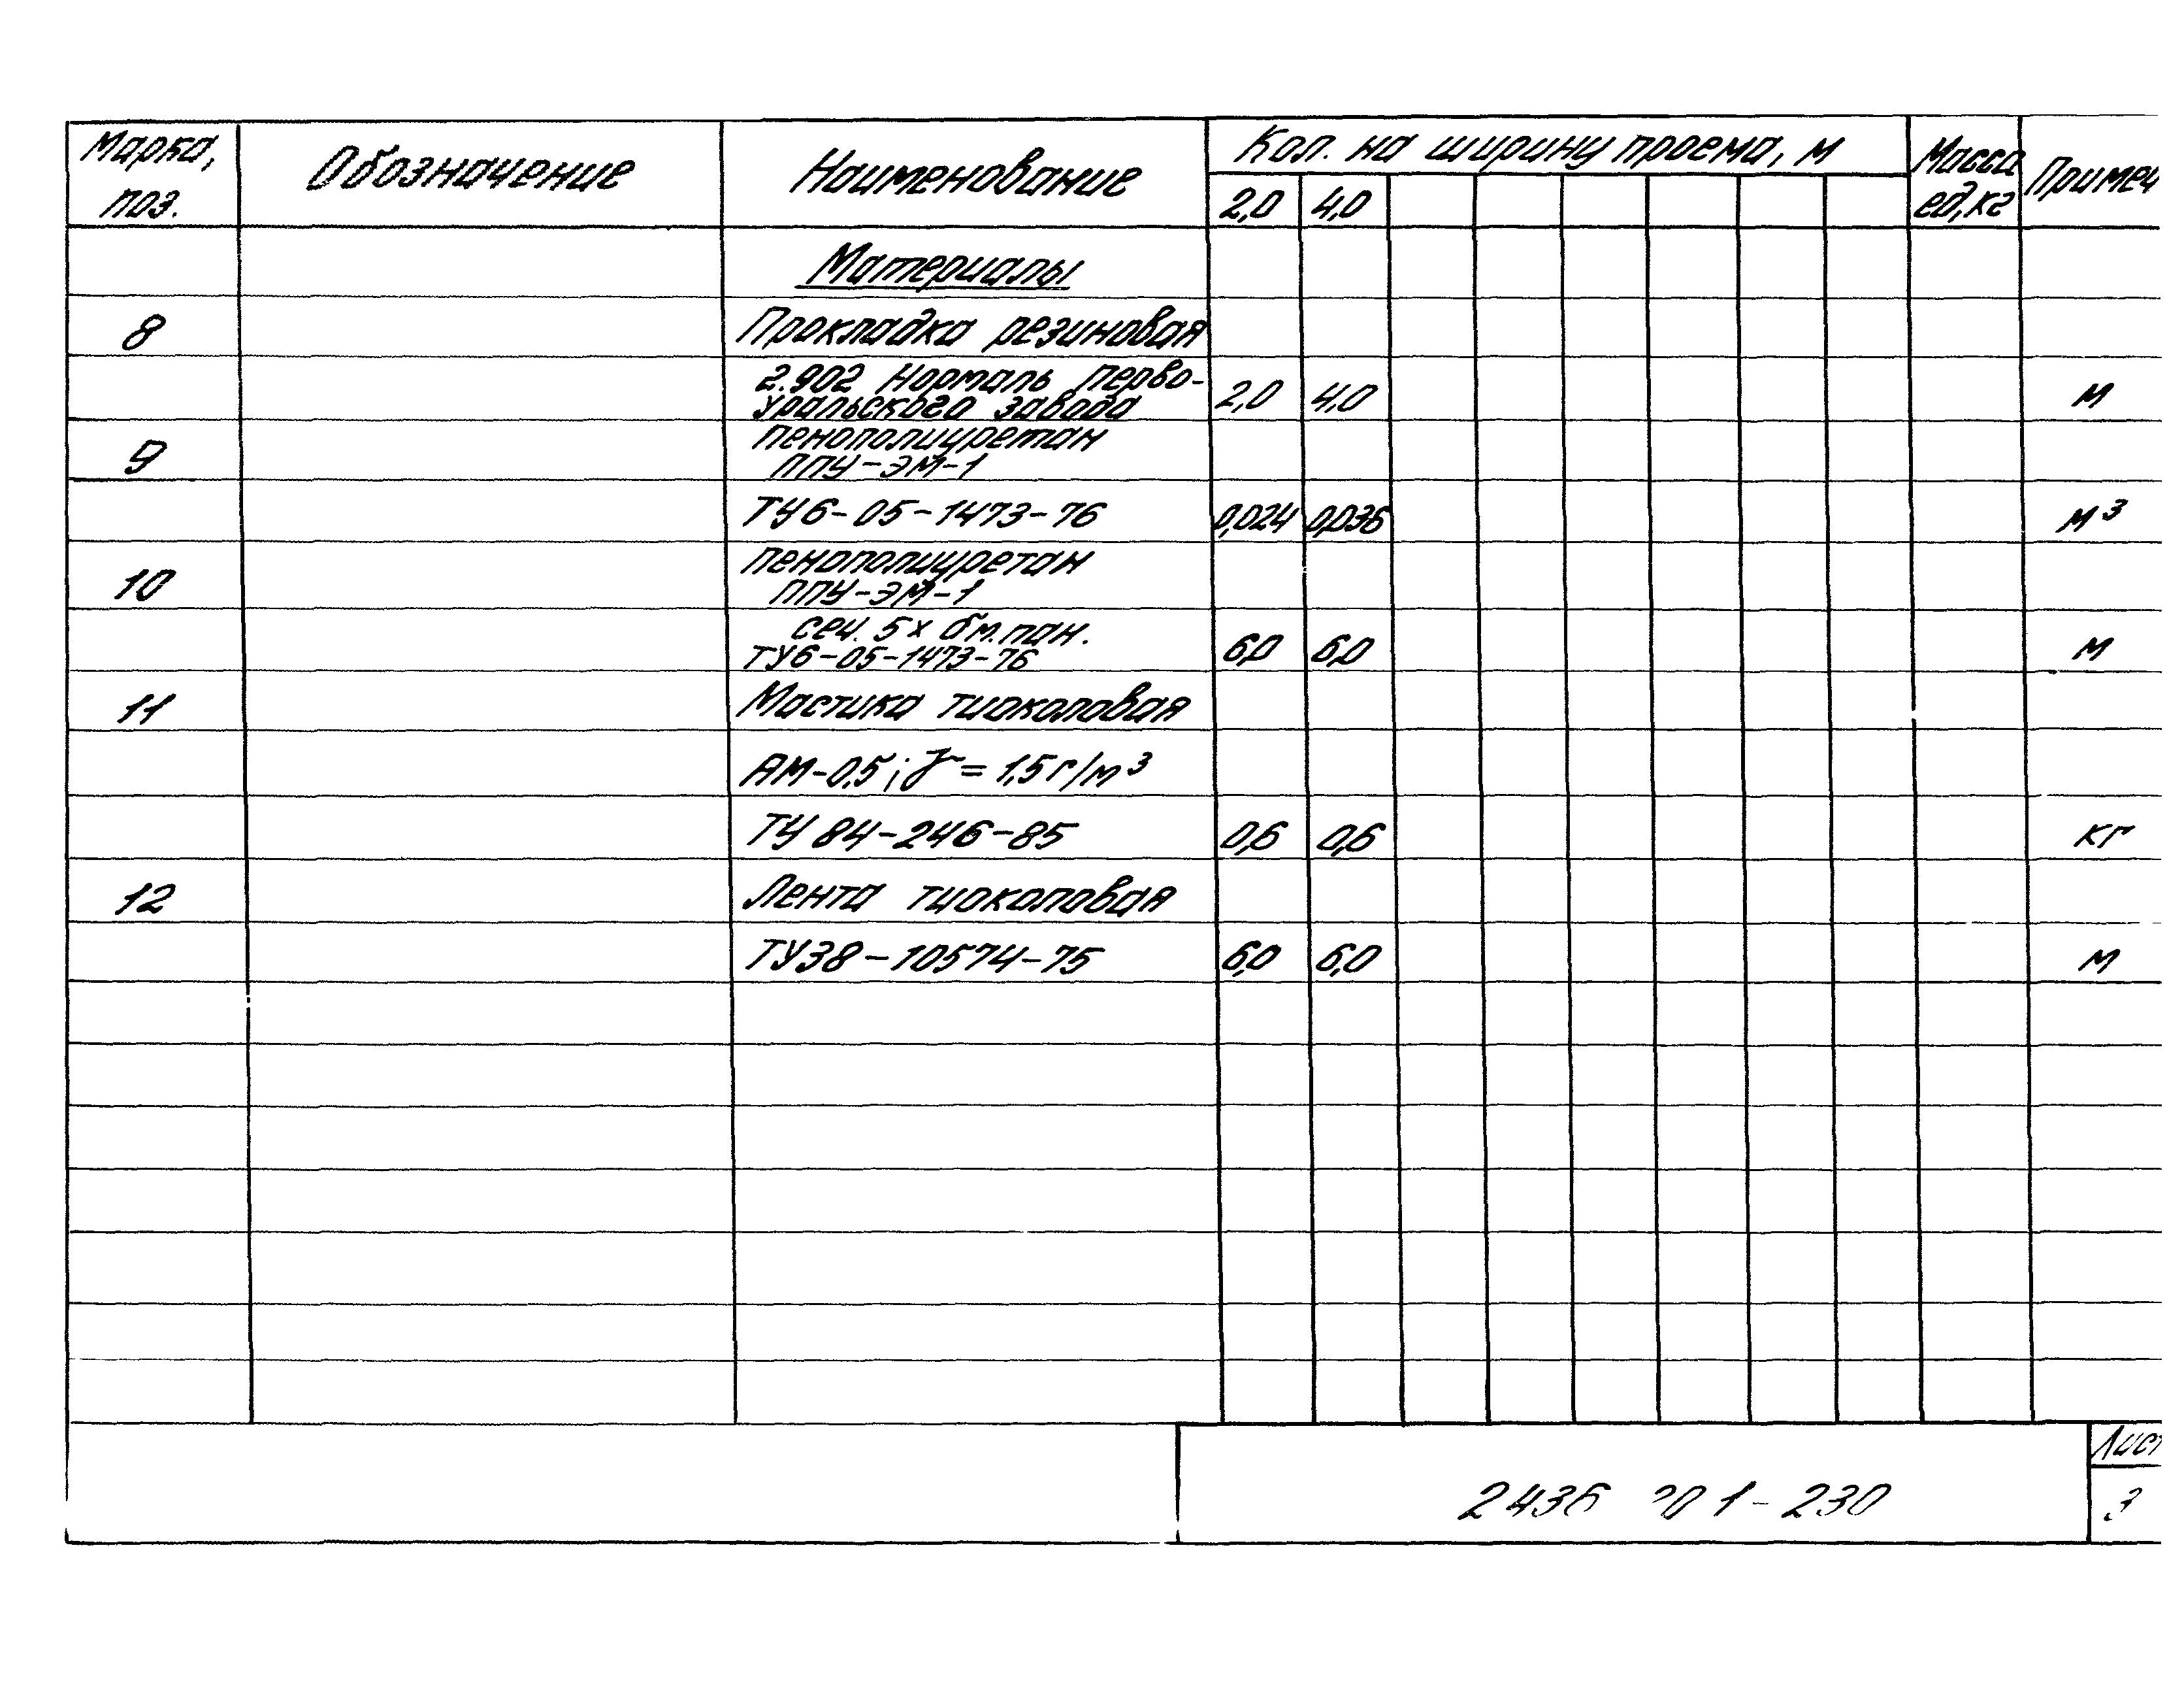 Марка, поз. Обозначение Наименование Кол. на ширину проема, м Масса ед,кг Примеч
2,0 4,0
Материалы
8 Прокладка резиновая
2.902 Нормаль Перво-
уральского завода 2,0 4,0 м
9 пенополиуретан
ППУ-ЭМ-1
ТУ6-05-1473-76 0,024 0,036 м³
10 пенополиуретан
ППУ-ЭМ-1
сеч. 5х
ТУ6-05-1473-76 6,0 6,0 м
11 Мастика тиоколовая
АМ-0.5; γ = 1,5 г/м³
ТУ 84-246-85 0,6 0,6 кг
12 Лента тиоколовая
ТУ38-10574-75 6,0 6,0 м
Лист
2436 1-230 3